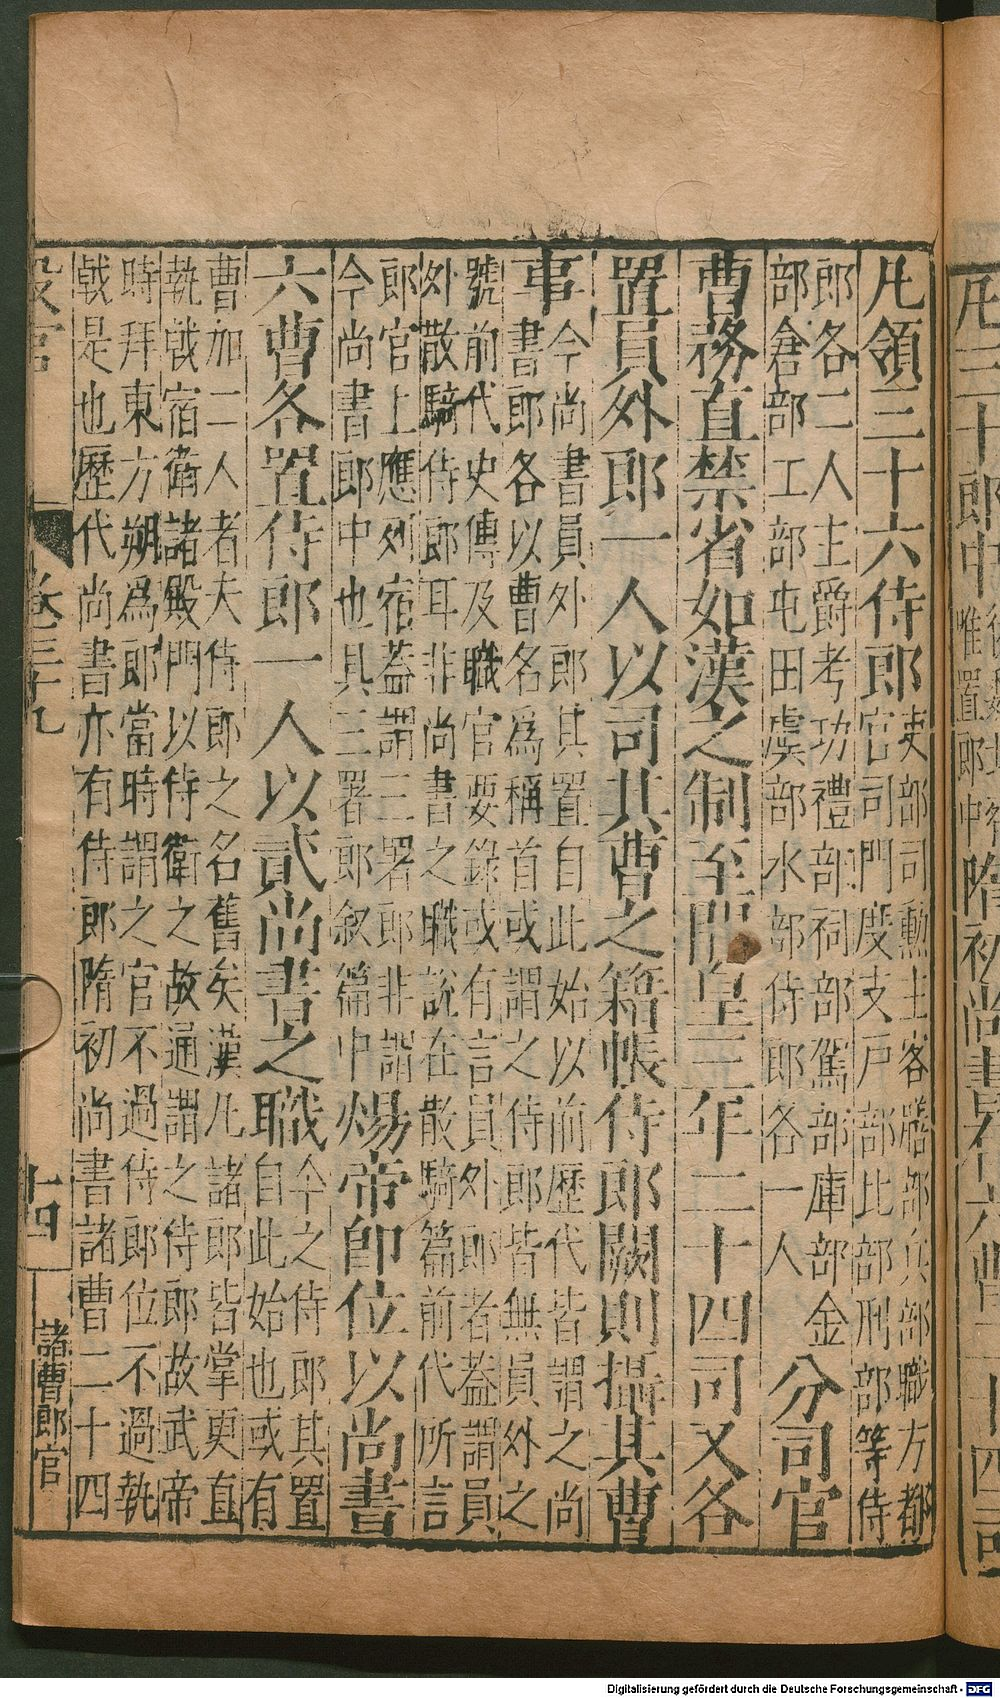 凡領三十六侍郎吏部司勳主客膳部兵部職方都
官司門度支戶部比部刑部等侍
郎各二人主爵考功禮部祠部駕部庫部金
部倉部工部屯田虞部水部侍郎各一人分司官
曹務直禁省如漢之制至開皇三年二十四司又各
置員外郎一人以司其曹之籍帳侍郎闕則攝其曹
事今尚書員外郎其置自此始以前歷代皆謂之尚
書郎各以曹名爲稱首或謂之侍郎皆無員外之
號前代史傳及職官要錄或有言員外郎者葢謂員
外散騎侍郎耳非尚書之職說在散騎篇前代所言
郎官上應列宿葢謂三署郎非謂
今尚書郎中也具三署郎叙篇中煬帝卽位以尚書
六曹各置侍郎一人以貳尚書之職今之侍郎其置
自此始也或有
曹加二人者夫侍郎之名舊矣漢凡諸郎皆掌更直
執戟宿衛諸殿門以侍衛之故通謂之侍郎故武帝
時拜東方朔爲郎當時謂之官不過侍郎位不過執
戟是也歷代尚書亦有侍郎隋初尚書諸曹二十四
卷三十九
十四
諸曹郎官
Digitalisierung gefördert durch die Deutsche Forschungsgemeinschaft - DFG